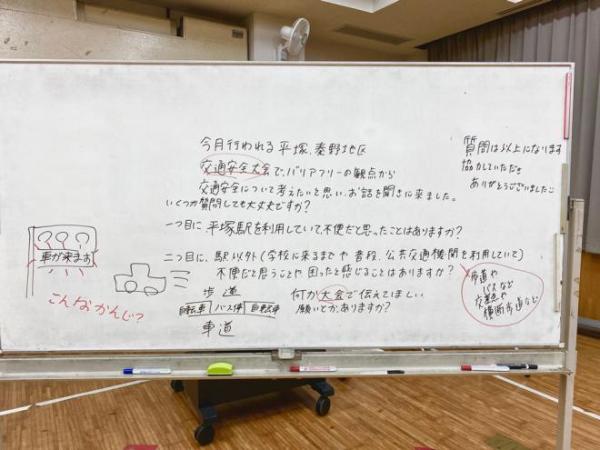 今月行われる平塚、秦野地区
交通安全大会で、バリアフリーの観点から
交通安全について考えたいと思い、お話を聞きに来ました。
いくつか質問しても大丈夫ですか？
一つ目に、平塚駅を利用していて不便だと思ったことはありますか？
二つ目に、駅以外(学校に来るまでや普段、公共交通機関を利用していて)
不便だと思うことや困ったと感じることはありますか？
歩道や
バスなど
交差点や
横断歩道など
何か大会で伝えてほしい
願いとか、ありますか？
質問は以上になります
協力していただき
ありがとうございました
車が来ます
こんなかんじっ
歩道
自転車 バス停 自転車
車道